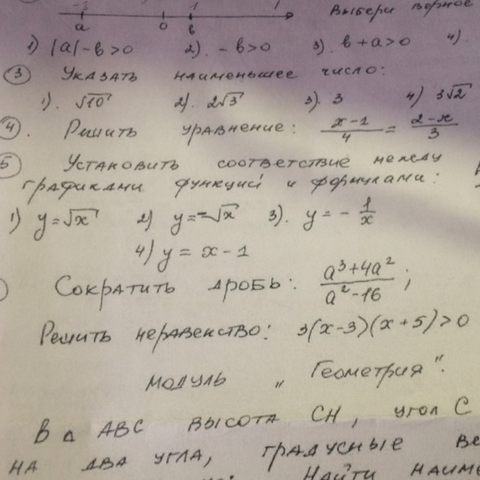 -3 -1 1
a 0 в
Выбери верное
1) |a|-в>0 2). -в>0 3). в+a>0 4).
3 Указать наименьшее число:
1). √10 2). 2√3 3). 3 4) 3√2
4. Решить уравнение: x-1/4 = 2-x/3
5 Установить соответствие между
графиками функций и формулами:
1) y=√x 2) y=-√x 3). y = - 1/x
4) y = x - 1
Сократить дробь: a³+4a²/a²-16;
Решить неравенство: 3(x-3)(x+5)>0
модуль „Геометрия".
В △ ABC высота CH, угол C
на два угла, градусные
Найти